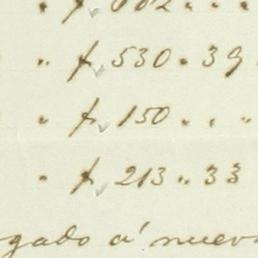 " f. 530 " 39
" f. 150 " . "
" f. 213 " 33
gado á nuevo